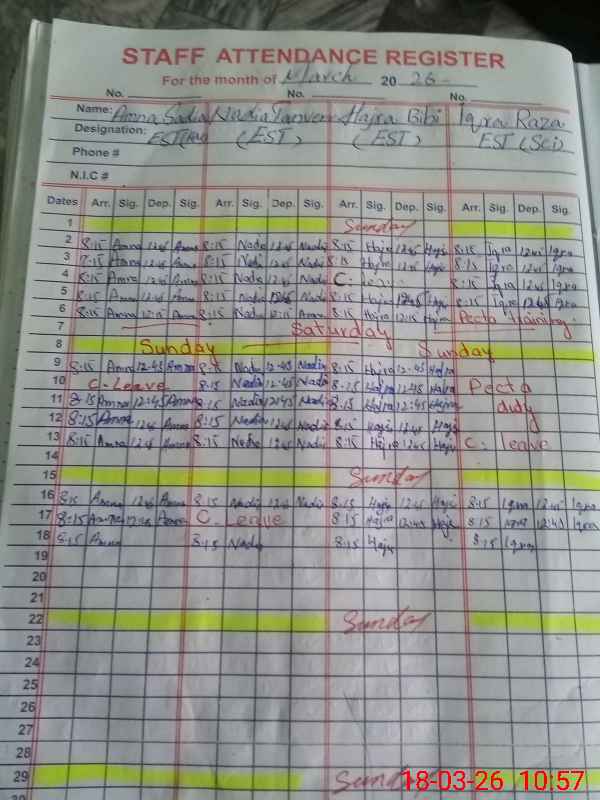 STAFF ATTENDANCE REGISTER
For the month of March 2026
No. No. No.
Name: Amna Sadia Nadia Tanveer Hajra Bibi Iqra Raza
Designation: EST (EST) (EST) EST (Sci)
Phone #
N.I.C #
Dates Arr. Sig. Dep. Sig. Arr. Sig. Dep. Sig. Arr. Sig. Dep. Sig. Arr. Sig. Dep. Sig.
1 Sunday
2 8:15 Amna 12:45 Amna 8:15 Nadi 12:45 Nadi 8:15 Hajra 12:45 Hajr 8:15 Iqra 12:45 Iqra
3 8:15 Amna 12:45 Amna 8:15 Nadi 12:45 Nadi 8:15 Hajra 12:45 Hajr 8:15 Iqra 12:45 Iqra
4 8:15 Amna 12:45 Amna 8:15 Nadi 12:45 Nadi C. 8:15 Iqra 12:45 Iqra
5 8:15 Amna 12:45 Amna 8:15 Nadi 12:45 Nadi 8:15 Hajra 12:45 Hajr 8:15 Iqra 12:45 Iqra
6 8:15 Amna 12:15 Amna 8:15 Nadi 12:15 8:15 Hajra 12:15 Hajr Pecta training.
7 Saturday
8 Sunday Sunday
9 8:15 Amna 12:45 Amna 8:15 Nadi 12:45 Nadia 8:15 Hajra 12:45 Hajra
10 C-Leave 8:15 Nadia 12:45 Nadi 8:15 Hajra 12:45 Hajra Pecta
11 8:15 Amna 12:45 Amna 8:15 Nadia 12:45 Nadi 8:15 Hajra 12:45 Hajra duty
12 8:15 Amna 12:45 Amna 8:15 Nadi 12:45 Nadi 8:15 Hajra 12:45 Hajr
13 8:15 Amna 12:45 Amna 8:15 Nadi 12:45 Nadi 8:15 Hajra 12:45 Hajr C. leave
14
15 Sunday
16 8:15 Amna 12:45 Amna 8:15 Nadi 12:45 Nadi 8:15 Hajr 12:45 Hajr 8:15 Iqra 12:45 Iqra
17 8:15 Amna 12:45 Amna C. Leave 8:15 Hajra 12:45 Hajr 8:15 Iqra 12:45 Iqra
18 8:15 Amna 8:15 Nadi 8:15 Hajr 8:15 Iqra
19
20
21
22 Sunday
23
24
25
26
27
28
29 Sunday
18-03-26 10:57